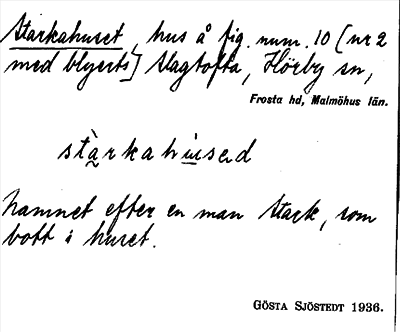 Starkahuset, hus å fig. num. 10 [nr 2
med blyerts] Slagtofta, Hörby sn,
Frosta hd, Malmöhus län.
stàrkahúsəd
Namnet efter en man Stark, som
bott i huset.
GÖSTA SJÖSTEDT 1936.